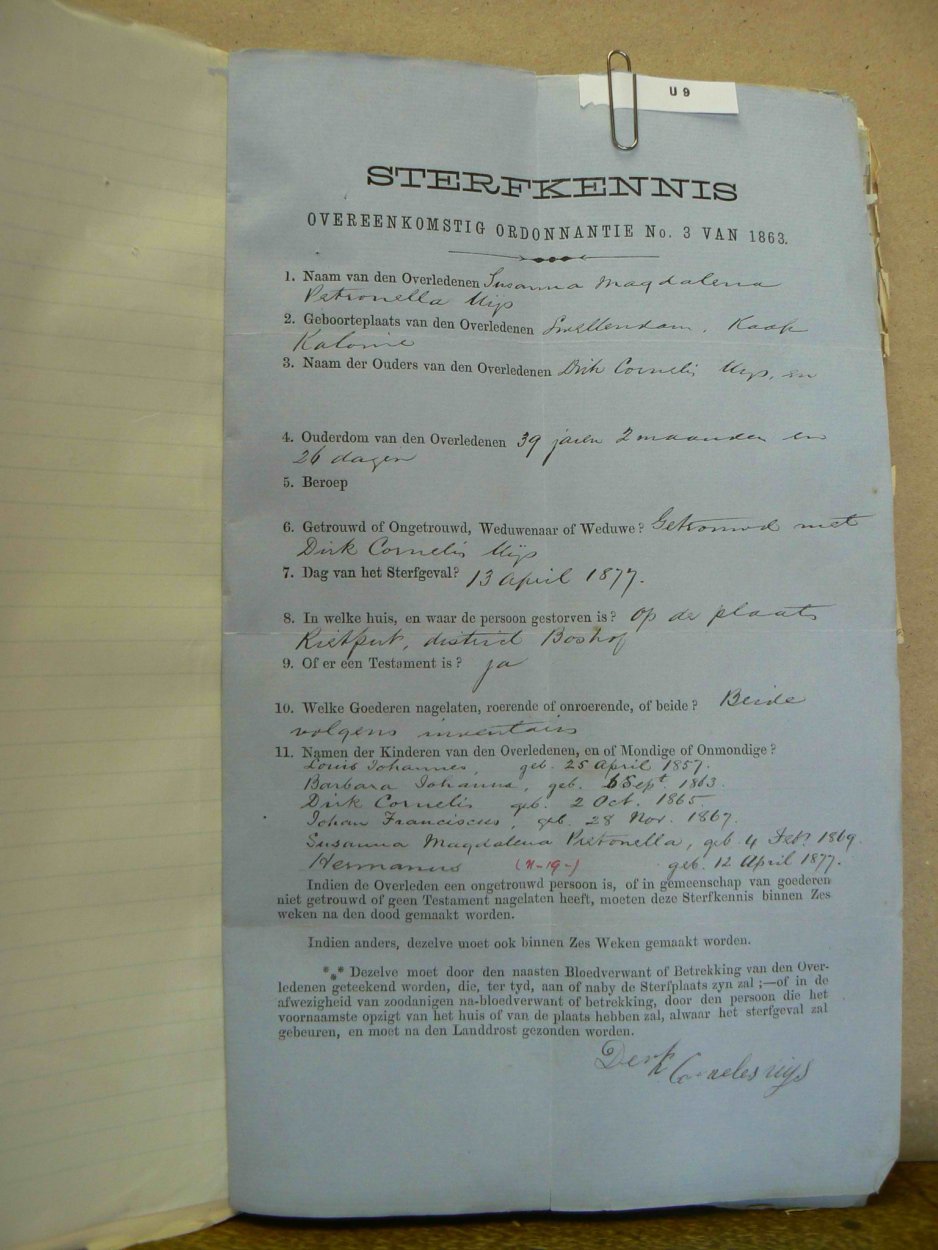 U 9
STERFKENNIS
OVEREENKOMSTIG ORDONNANTIE No. 3 VAN 1863.
1. Naam van den Overledenen Susanna Magdalena
Petronella Uijs
2. Geboorteplaats van den Overledenen Swellendam, Kaap
Kolonie
3. Naam der Ouders van den Overledenen Dirk Cornelis Uijs, en
4. Ouderdom van den Overledenen 39 jaren 2 maanden en
26 dagen
5. Beroep
6. Getrouwd of Ongetrouwd, Weduwenaar of Weduwe? Getrouwd met
Dirk Cornelis Uijs
7. Dag van het Sterfgeval? 13 April 1877.
8. In welke huis, en waar de persoon gestorven is? Op de plaats
Rietput, district Boshof
9. Of er een Testament is? ja
10. Welke Goederen nagelaten, roerende of onroerende, of beide? Beide
volgens inventaris
11. Namen der Kinderen van den Overledenen, en of Mondige of Onmondige?
Louis Johannes, geb. 25 April 1857.
Barbara Johanna, geb. 6 Sept 1863.
Dirk Cornelis geb. 2 Oct. 1865.
Johan Franciscus, geb. 28 Nov. 1867.
Susanna Magdalena Petronella, geb 4 Feb? 1869.
Hermanus geb. 12 April 1877.
Indien de Overleden een ongetrouwd persoon is, of in gemeenschap van goederen
niet getrouwd of geen Testament nagelaten heeft, moeten deze Sterfkennis binnen Zes
weken na den dood gemaakt worden.
Indien anders, dezelve moet ook binnen Zes Weken gemaakt worden.
*** Dezelve moet door den naasten Bloedverwant of Betrekking van den Over-
ledenen geteekend worden, die, ter tyd, aan of naby de Sterfplaats zyn zal ;—of in de
afwezigheid van zoodanigen na-bloedverwant of betrekking, door den persoon die het
voornaamste opzigt van het huis of van de plaats hebben zal, alwaar het sterfgeval zal
gebeuren, en moet na den Landdrost gezonden worden.
Derk Corneles Uijs